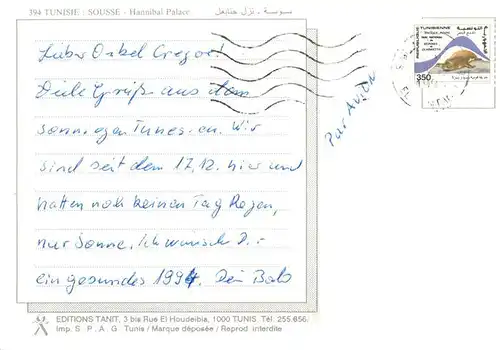 394 TUNISIE : SOUSSE - Hannibal Palace سوسة - نزل حنبعل
REPUBLIQUE TUNISIENNE
350
Lieber Onkel Gregor!
Viele Grüße aus dem
sonnigen Tunesien. Wir
sind seit dem 17.12. hier und
hatten noch keinen Tag Regen,
nur Sonne. Ich wünsch Dir
ein gesundes 1994. Dein
Par Avion
EDITIONS TANIT, 3 bis Rue El Houdeibia, 1000 TUNIS. Tél. 255.656.
Imp. S . P . A . G Tunis / Marque déposée / Reprod interdite